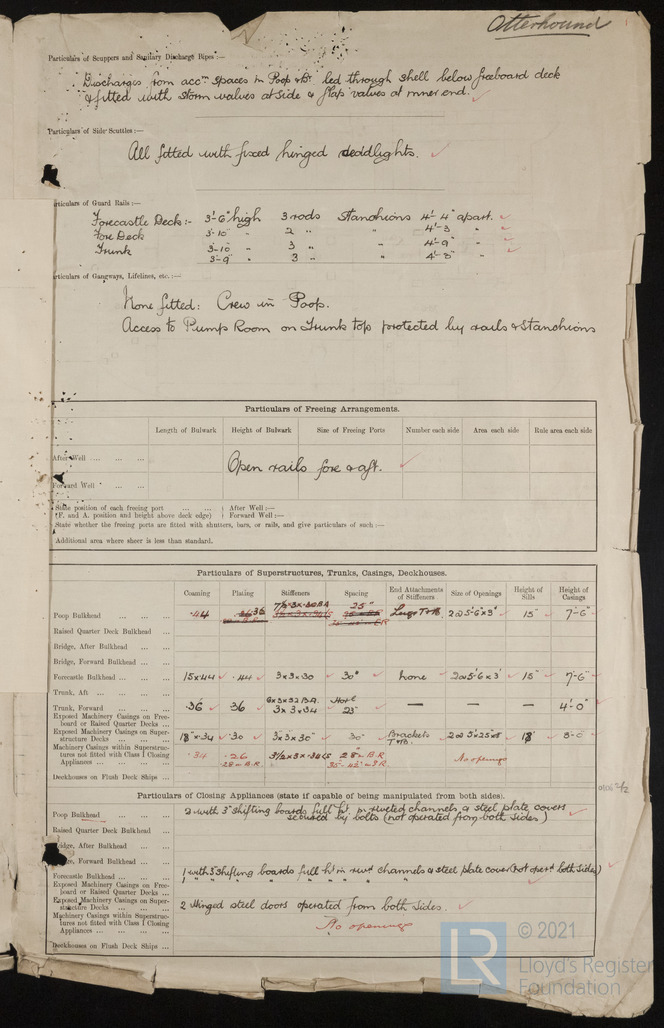 Otterhound
Particulars of Scuppers and Sanitary Discharge Pipes :—
Discharges from accm spaces in Poop & Br. led through shell below freeboard deck
& fitted with storm valves at side & flap valves at inner end.
Particulars of Side Scuttles :—
All fitted with fixed hinged deadlights.
articulars of Guard Rails :—
Forecastle Deck:- 3'-6" high 3 rods Stanchions 4'-4" apart.
Fore Deck 3'-10" " 2 " " 4'-3 "
Trunk 3'-10 " 3 " " 4'-9" "
3'-9" " 3 " " 4'-8" "
articulars of Gangways, Lifelines, etc. :—
None fitted: Crew in Poop.
Access to Pump Room on Trunk top protected by rails & Stanchions
Particulars of Freeing Arrangements.
Length of Bulwark Height of Bulwark Size of Freeing Ports Number each side Area each side Rule area each side
After Well ... ... ...
Open rails fore & aft.
Forward Well ... ...
State position of each freeing port ... ... ... } After Well :—
(F. and A. position and height above deck edge) } Forward Well :—
State whether the freeing ports are fitted with shutters, bars, or rails, and give particulars of such :—
Additional area where sheer is less than standard.
Particulars of Superstructures, Trunks, Casings, Deckhouses.
Coaming Plating Stiffeners Spacing End Attachments of Stiffeners Size of Openings Height of Sills Height of Casings
Poop Bulkhead ... ... ... .44 .36 25" Lugs T&B. 2@5'6"x3' 15" 7'-6"
Raised Quarter Deck Bulkhead ...
Bridge, After Bulkhead ... ...
Bridge, Forward Bulkhead ... ...
Forecastle Bulkhead ... ... ... 15x44 .44 3x3x30 30" None 2@5'6x3' 15" 7'-6"
Trunk, Aft ... ... ... ... 6x3x32 B.A. Horl
Trunk, Forward ... ... ... .36 36 3x3x34 23" — — — 4'-0"
Exposed Machinery Casings on Free-
board or Raised Quarter Decks ...
Exposed Machinery Casings on Super-
structure Decks ... ... ... 18"x.34 .30 3x3x30" 30" Brackets T&B. 18"
Machinery Casings within Superstruc-
tures not fitted with Class I Closing
Appliances ... ... ... ... .34 .26 No openings
Deckhouses on Flush Deck Ships ...
Particulars of Closing Appliances (state if capable of being manipulated from both sides).
Poop Bulkhead ... ... ... 2 with 3" shifting boards full ht in riveted channels & steel plate covers
secured by bolts (not operated from both sides)
Raised Quarter Deck Bulkhead ...
ridge, After Bulkhead ... ...
ge, Forward Bulkhead ... ...
Forecastle Bulkhead ... ... ... 1 with 3" shifting boards full ht in rivt channels & steel plate cover (not opert both sides)
Exposed Machinery Casings on Free-
board or Raised Quarter Decks ...
Exposed Machinery Casings on Super-
structure Decks ... ... ... 2 Hinged steel doors operated from both sides.
Machinery Casings within Superstruc-
tures not fitted with Class I Closing
Appliances ... ... ... ... No openings
Deckhouses on Flush Deck Ships ...
LR © 2021
Lloyd's Register
Foundation